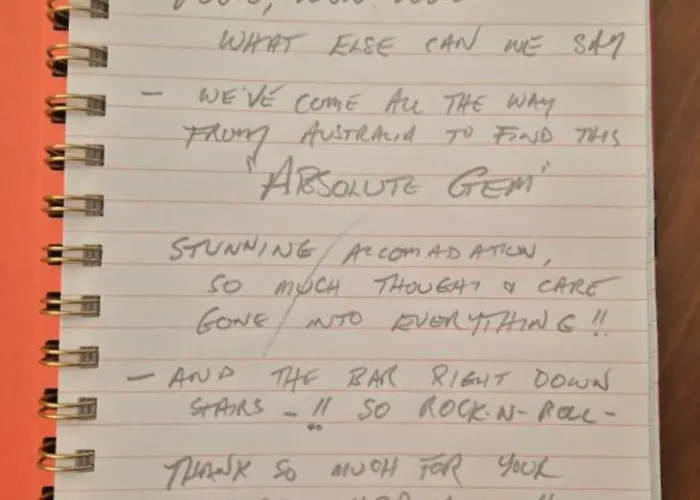 WHAT ELSE CAN WE SAY
- WE'VE COME ALL THE WAY
FROM AUSTRALIA TO FIND THIS
"ABSOLUTE GEM"
STUNNING ACCOMADATION,
SO MUCH THOUGHT & CARE
GONE INTO EVERYTHING!!
- AND THE BAR RIGHT DOWN
STAIRS - !! SO ROCK-N-ROLL -
THANK SO MUCH FOR YOUR